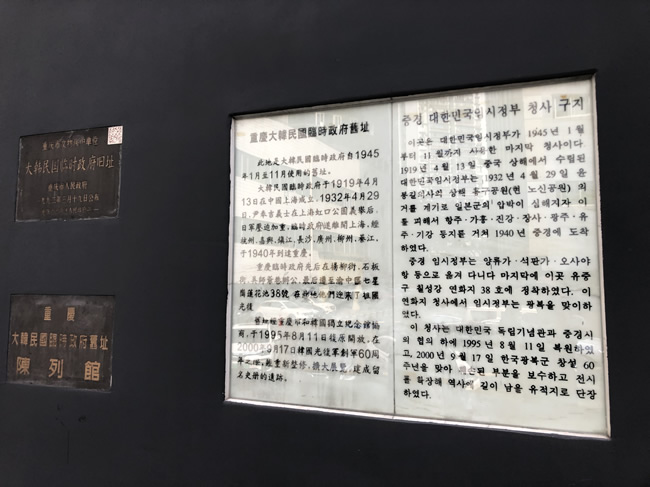 大韓民国臨時政府旧址
重慶
大韓民國臨時政府舊址
陳列館
重慶大韓民國臨時政府舊址
此地是大韓民國臨時政府自1945
年1月至11月使用的舊址。
大韓民國臨時政府于1919年4月
13日在中國上海成立，1932年4月29
日，尹奉吉義士在上海虹口公園義舉后，
日軍壓迫加重，臨時政府遂離開上海，經
杭州、嘉興、鎮江、長沙、廣州、柳州、綦江，
于1940年到達重慶。
重慶臨時政府先后在楊柳街、石板
街、吳師爺巷辦公，最后遷至渝中區七星
崗蓮花池38號
光復
舊址經重慶市和韓國獨立紀念館協
商，于1995年8月11日復原開放，在
2000年9月17日韓國光復軍創軍60周
年之際，嚴重新整修，擴大展覽，建成留
名史册的遺跡。
중경 대한민국임시정부 청사 구지
이곳은 대한민국임시정부가 1945년 1월
부터 11월까지 사용한 마지막 청사이다.
1919년 4월 13일 중국 상해에서 수립된
대한민국임시정부는 1932년 4월 29일 윤
봉길의사의 상해 홍구공원(현 노신공원) 의
거를 계기로 일본군의 압박이 심해지자 이
를 피해서 항주·가흥·진강·장사·광주·유
주·기강 등지를 거쳐 1940년 중경에 도착
하였다.
중경 임시정부는 양류가·석판가·오사야
항 등으로 옮겨 다니다 마지막에 이곳 유중
구 칠성강 연화지 38호에 정착하였다. 이
연화지 청사에서 임시정부는 광복을 맞이하
였다.
이 청사는 대한민국 독립기념관과 중경시
의 협의 하에 1995년 8월 11일 복원하였
고, 2000년 9월 17일 한국광복군 창설 60
주년을 맞아 훼손된 부분을 보수하고 전시
품 확장해 역사에 길이 남을 유적지로 단장
하였다.